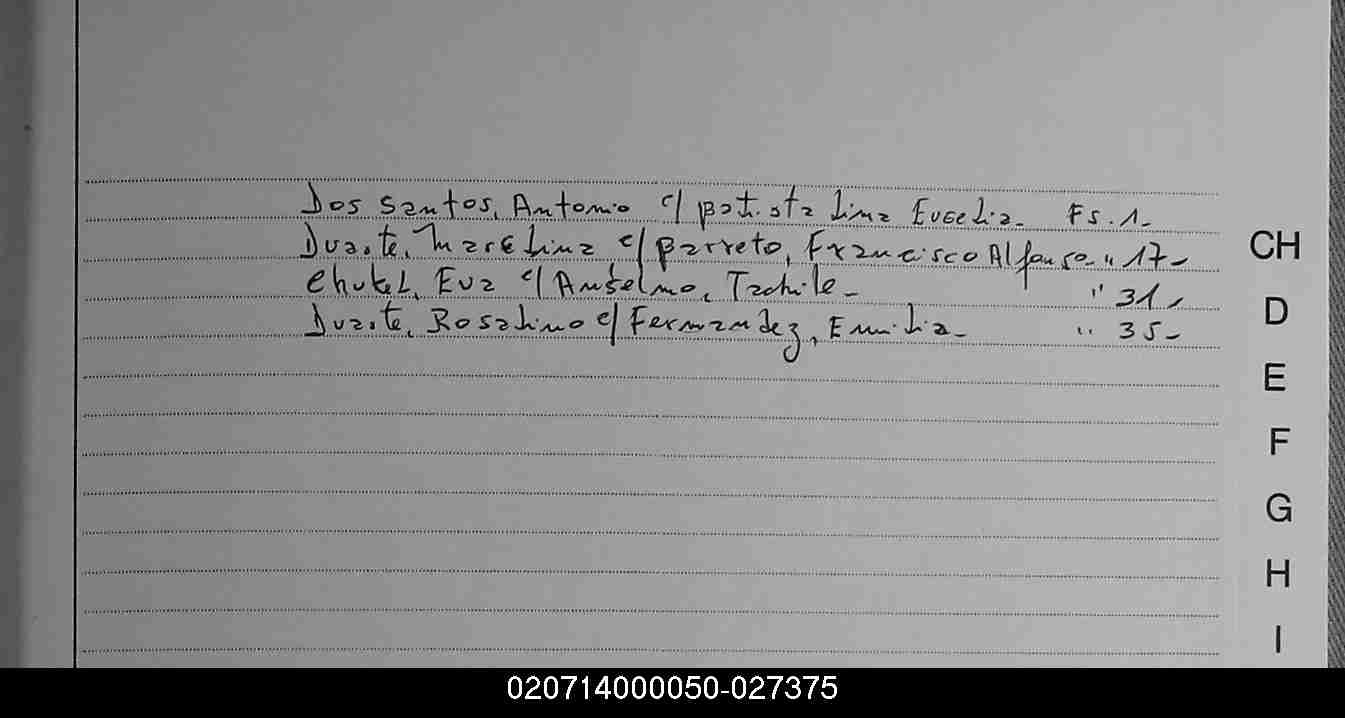 Dos Santos, Antonio c/ Batista Lima Eugelia- Fs. 1-
Duarte, Marelina c/ Barreto, Francisco Alfonso- " 17-
Chukel, Eva c/ Anselmo, - " 31-
Duarte, Rosalino c/ Fernandez, Emilia- " 35-
CH
D
E
F
G
H
I
020714000050-027375